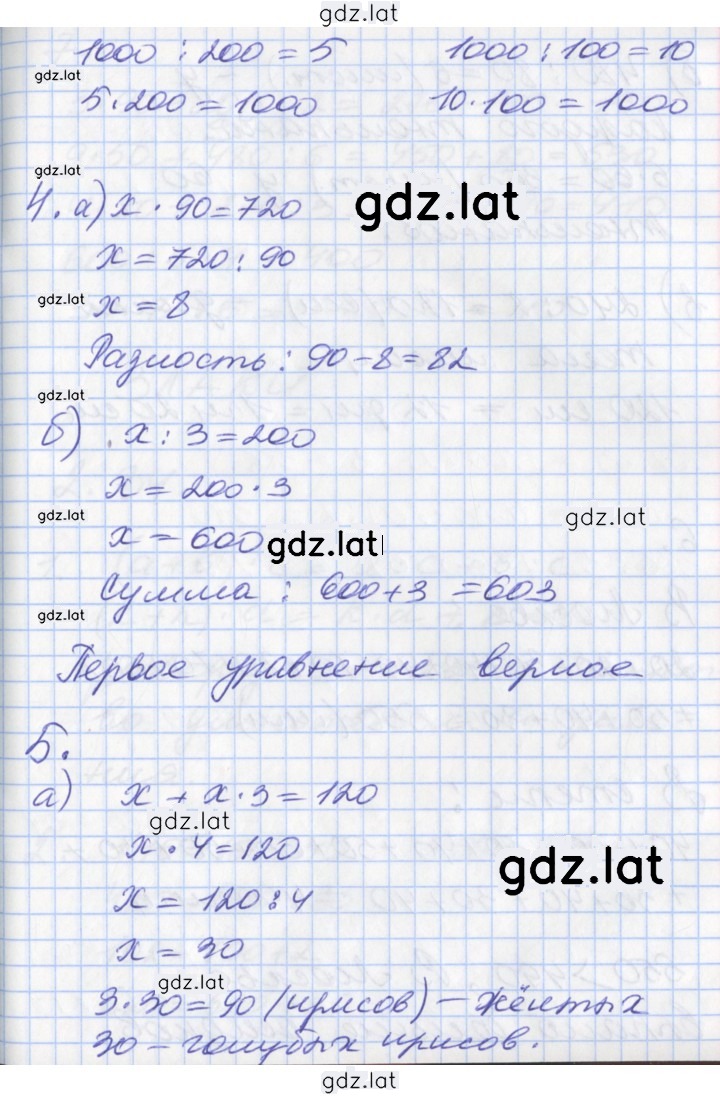 gdz.lat
1000 : 200 = 5 1000 : 100 = 10
gdz.lat
5·200 = 1000 10·100 = 1000
4. а) x · 90 = 720
gdz.lat
gdz.lat
x = 720 : 90
gdz.lat
x = 8
Разность : 90 - 8 = 82
gdz.lat
б) x : 3 = 200
x = 200 · 3
gdz.lat
gdz.lat
x = 600
gdz.lat
Сумма : 600 + 3 = 603
gdz.lat
Первое уравнение верное
5.
а) x + x · 3 = 120
gdz.lat
x · 4 = 120
gdz.lat
x = 120 : 4
x = 30
gdz.lat
3 · 30 = 90 (ирисов) – жёлтых
30 – голубых ирисов.
gdz.lat